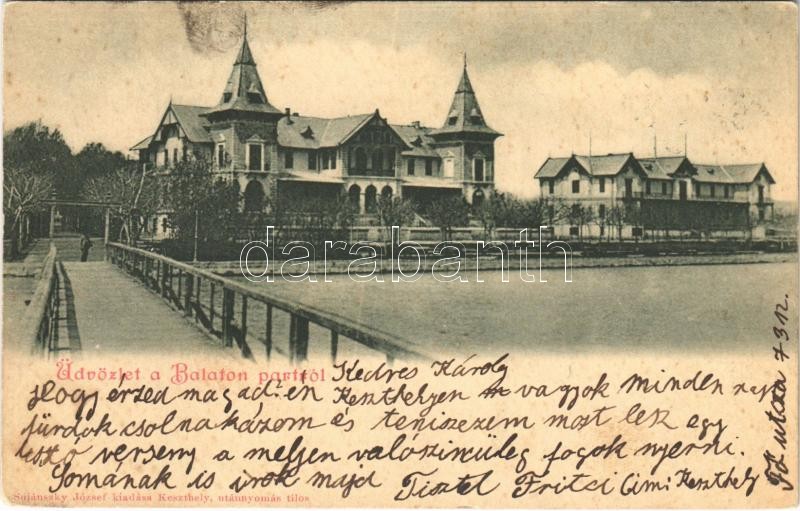 darabanth
Üdvözlet a Balaton partról Kedves Károly
Hogy érzed magad? én Keszthelyen vagyok minden nap
fürdök csolnakázom és teniszezem most lesz egy
verseny a melyen valószinüleg fogok nyerni.
Somának is irok majd Tisztel Fritzi Cim: Keszthely
Fő utcza 7312.
Sujánszky József kiadása Keszthely, utánnyomás tilos